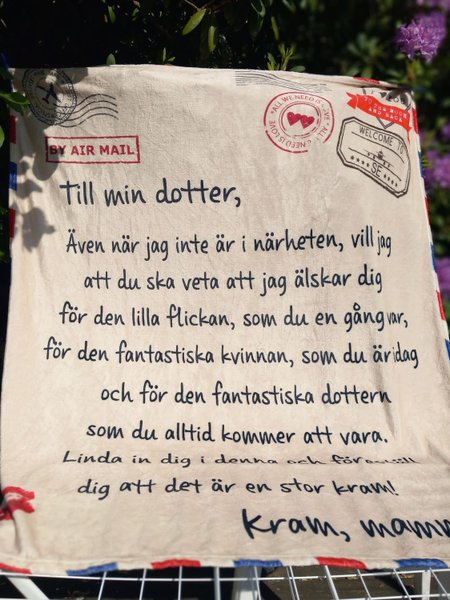 BY AIR MAIL
ALL WE NEED IS LOVE
WELCOME TO
SE
Till min dotter,
Även när jag inte är i närheten, vill jag
att du ska veta att jag älskar dig
för den lilla flickan, som du en gång var,
för den fantastiska kvinnan, som du är idag
och för den fantastiska dottern
som du alltid kommer att vara.
Linda in dig i denna och
dig att det är en stor kram!
Kram,